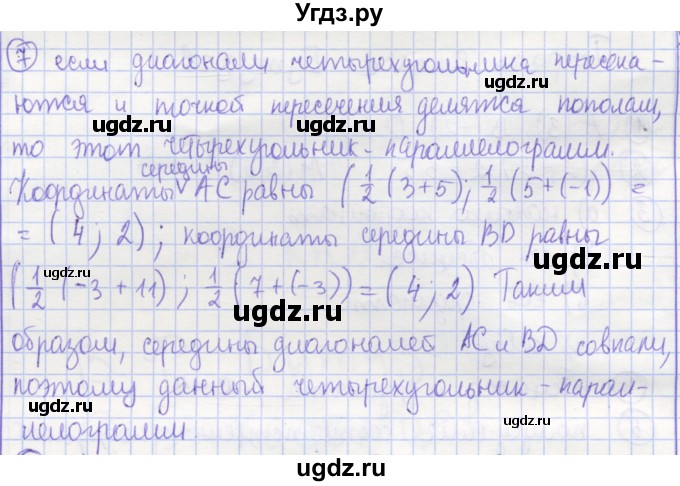 Угдз.ру
7 если диагонали четырехугольника пересека-
ются и точкой пересечения делятся пополам,
то этот четырехугольник - параллелограмм.
середины
Координаты ∨ AC равны (1/2 (3+5); 1/2 (5+(-1)) =
= (4; 2); координаты середины BD равны
(1/2 (-3+11); 1/2 (7+(-3)) = (4; 2). Таким
образом, середины диагоналей AC и BD совпали,
поэтому данный четырехугольник - парал-
лелограмм.
ugdz.ru
ugdz.ru
ugdz.ru
ugdz.ru
ugdz.ru
ugdz.ru
ugdz.ru
ugdz.ru
ugdz.ru
ugdz.ru
ugdz.ru